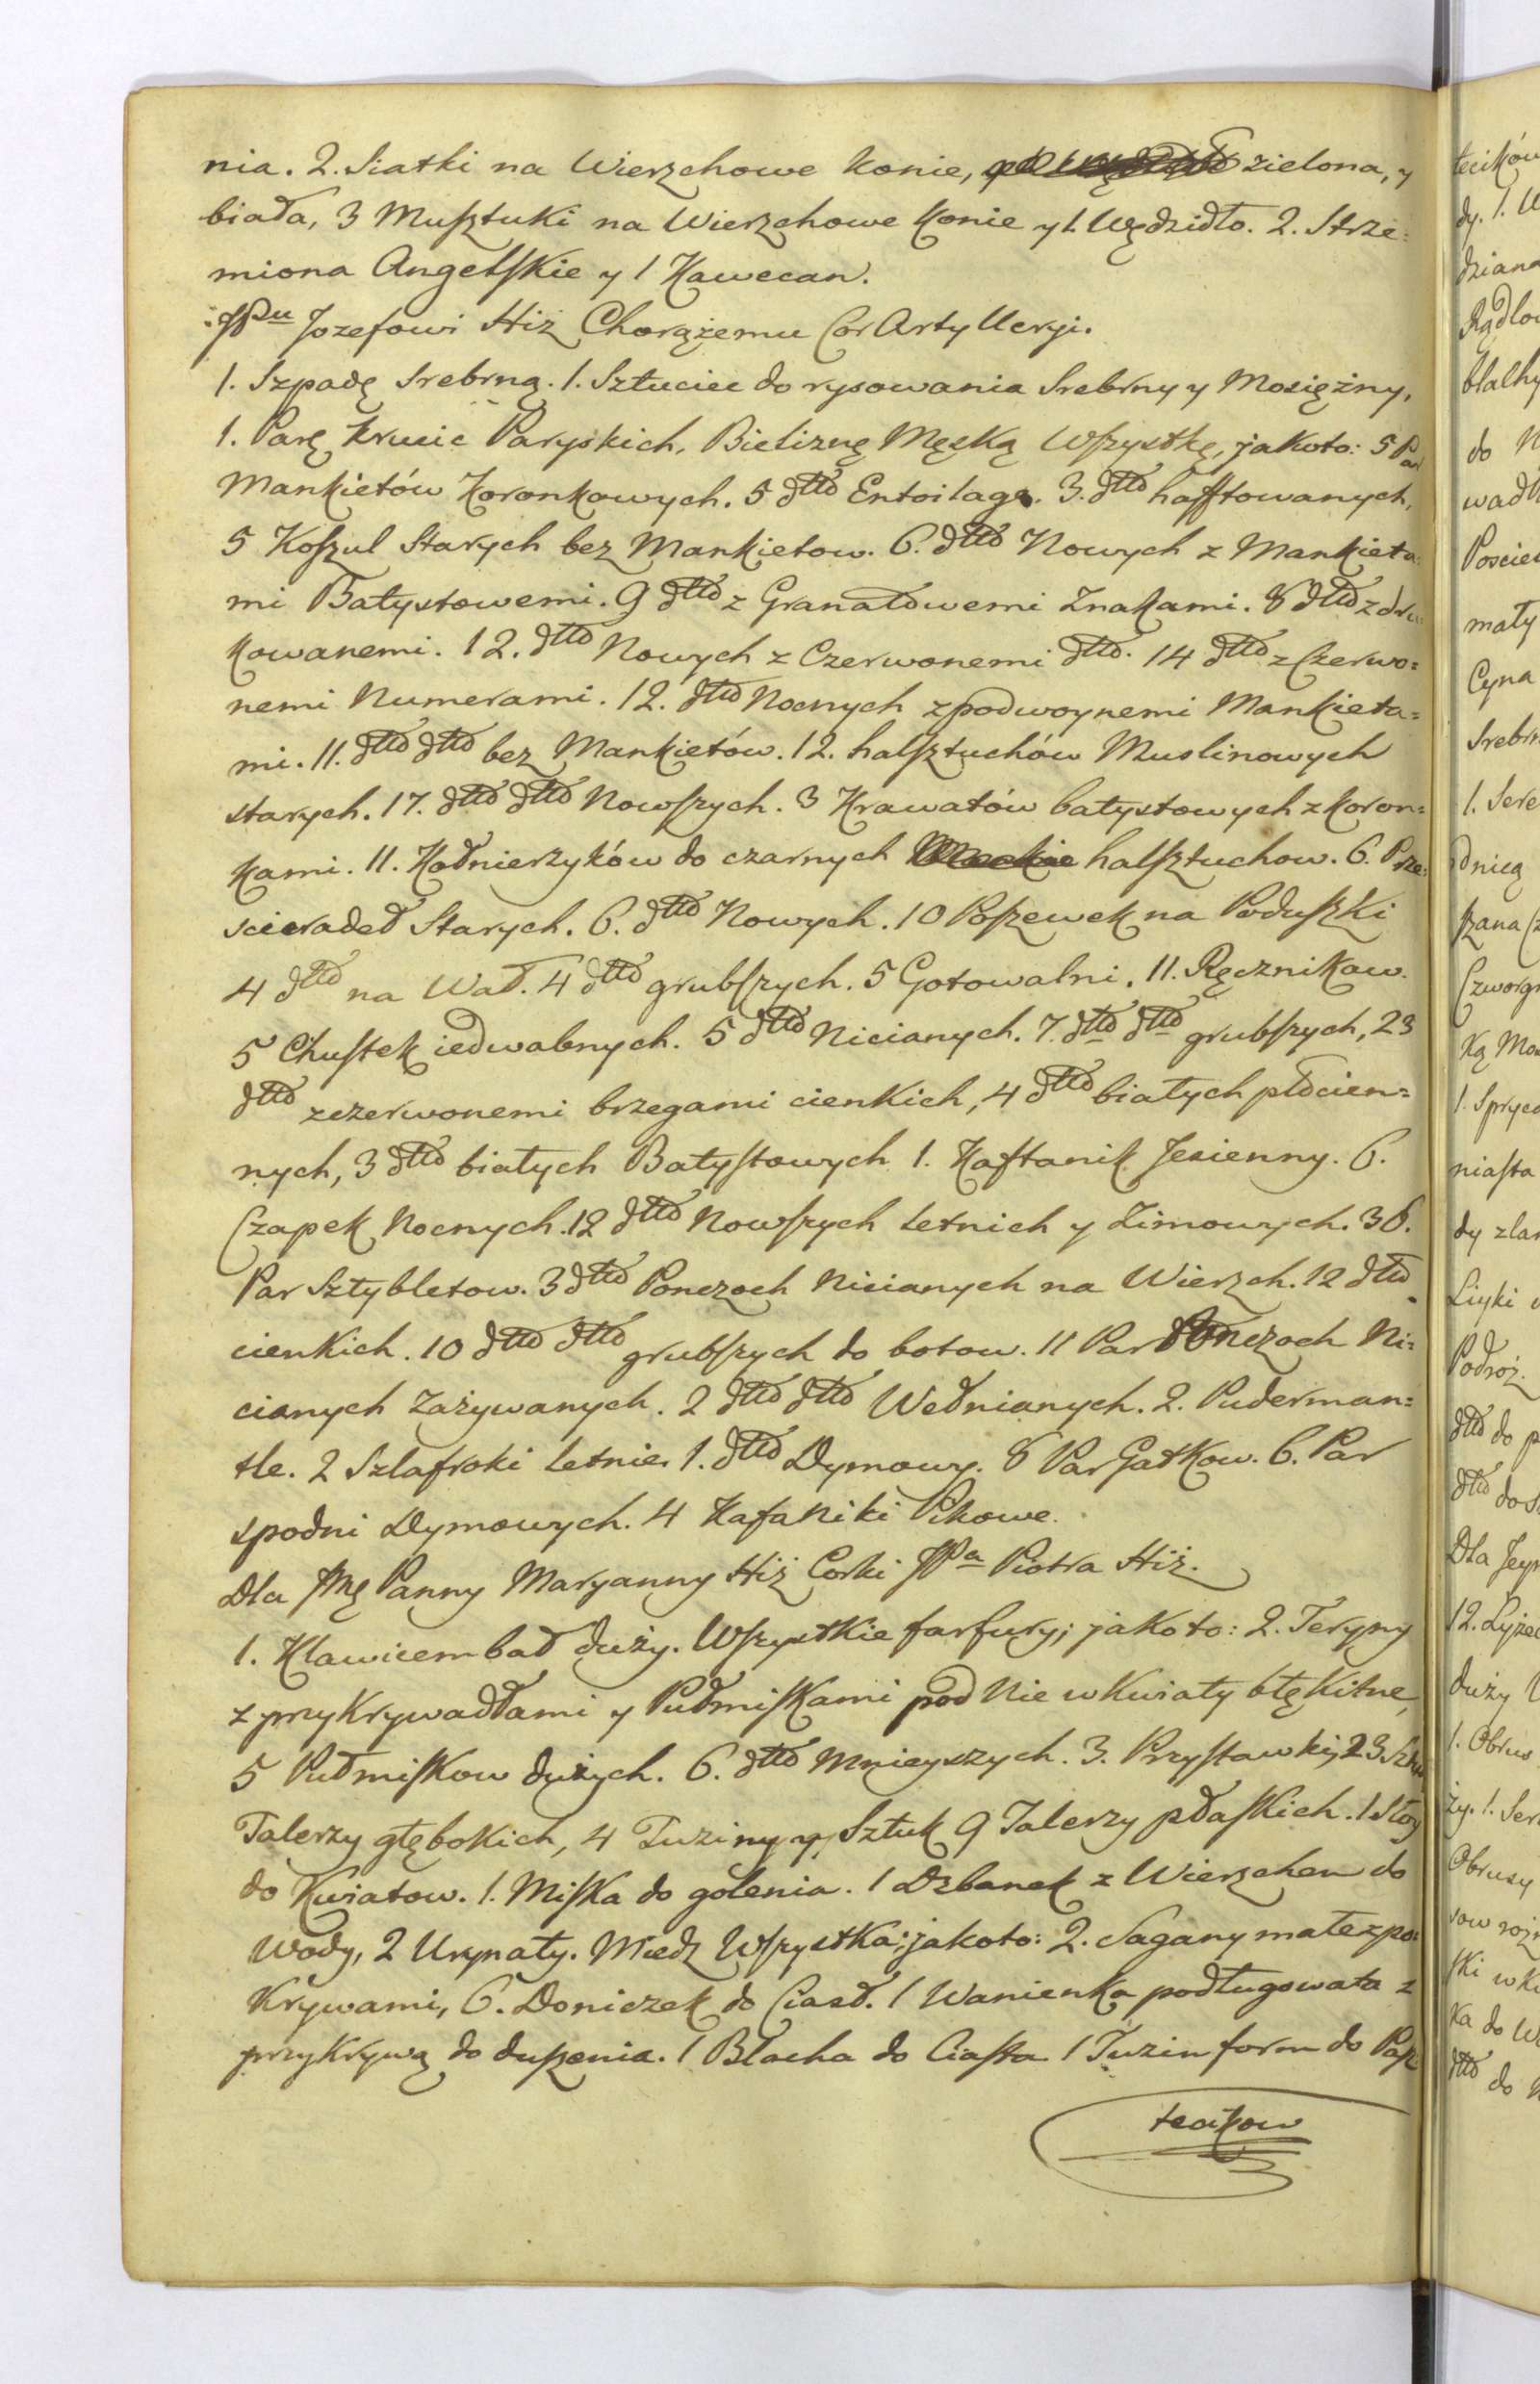 nia. 2. Siatki na Wierzchowe konie, zielona, y
biała, 3 Musztuki na Wierzchowe Konie y 1. Wędzidło. 2. Strze=
miona Angelskie y 1 Kawecan.
JPu Jozefowi Hiż Chorążemu Cor Artylleryi.
1. Szpadę Srebrną. 1. Sztuciec do rysowania Srebrny y Mosiężny,
1. Parę Krucic Paryskich, Bieliznę Męską Wszystkę, jakoto: 5 Par
Mankietów Koronkowych. 5 dtto Entoilage. 3. dtto hafftowanych,
5 Koszul Starych bez Mankietow. 6. dtto Nowych z Mankieta=
mi Batystowemi. 9 dtto z Granatowemi Znakami. 8 dtto z dru=
kowanemi. 12. dtto Nowych z Czerwonemi dtto. 14 dtto z Czerwo=
nemi Numerami. 12. dtto Nocnych z podwoynemi Mankieta=
mi. 11. dtto dtto bez Mankietów. 12. halsztuchów Muslinowych
starych. 17. dtto dtto Nowszych. 3 Krawatów batystowych z koron=
kami. 11. Kołnierzyków do czarnych halsztuchow. 6. Prze=
scieradeł Starych. 6. dtto Nowych. 10 Poszewek na Poduszki
4 dtto na Wał. 4 dtto grubszych. 5 Gotowalni. 11. Ręcznikow.
5 Chustek iedwabnych. 5 dtto Nicianych. 7. dtto dtto grubszych, 23
dtto zczerwonemi brzegami cienkich, 4 dtto białych płócien=
nych, 3 dtto białych Batystowych 1. Kaftanik Jesienny. 6.
Czapek Nocnych. 12 dtto Nowszych Letnich y Zimowych. 36.
Par Sztybletow. 3 dtto Ponczoch Nicianych na Wierzch. 12 dtto
cienkich. 10 dtto dtto grubszych do botow. 11 Par Ponczoch Ni=
cianych Zażywanych. 2 dtto dtto Wełnianych. 2. Puderman=
tle. 2 Szlafroki Letnie. 1. dtto Dymowy. 8 Par Gatkow. 6. Par
spodni Dymowych. 4 Kafaniki Pikowe.
Dla JMę Panny Maryanny Hiż Corki JPa Piotra Hiż.
1. Klawicembał duży. Wszystkie farfury; jakoto: 2. Teryny
z przykrywadłami y Pułmiskami pod Nie w kwiaty błękitne,
5 Pułmiskow dużych. 6. dtto Mnieyszych. 3. Przystawki, 23 Sztuk
Talerzy głębokich, 4 Tuziny y Sztuk 9 Talerzy płaskich. 1 Słoy
do Kwiatow. 1. Miska do golenia. 1 Dzbanek z Wierzchem do
Wody, 2 Urynały. Miedz Wszystka; jakoto: 2. Sagany małe z po=
krywami, 6. Doniczek do Ciast. 1 Wanienka podługowata z
przykrywą do duszenia. 1 Blacha do Ciasta 1 Tuzin form do Pasz
tecikow